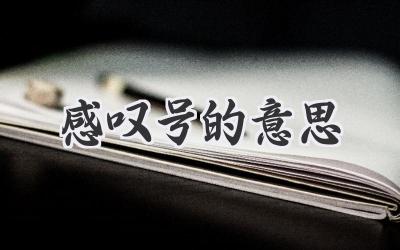 感叹号的意思